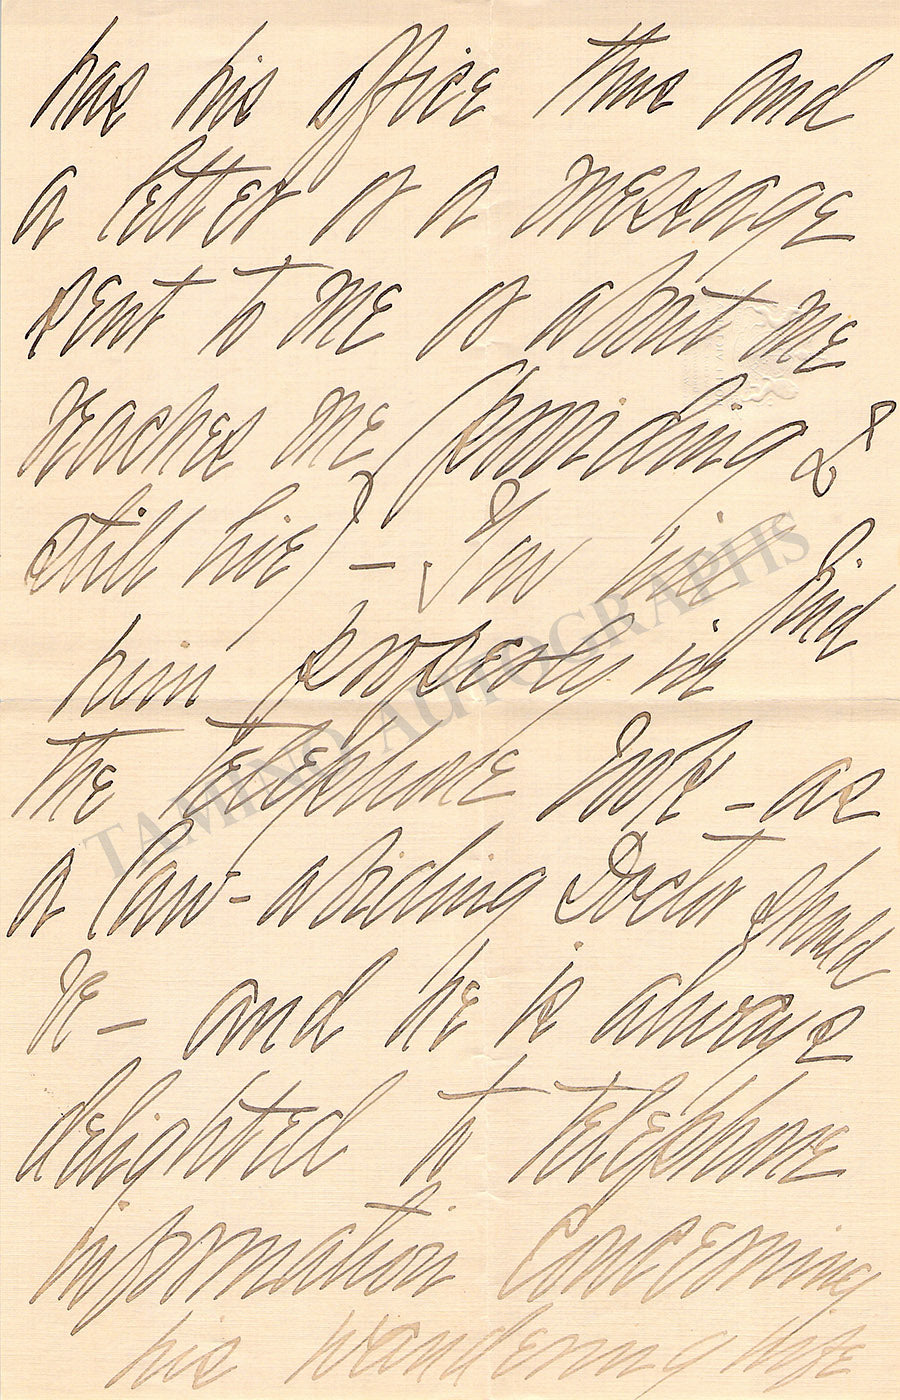 has his office thus and
a letter or a message
sent to me or about me
reaches me (providing I
still live) – You will find
him properly in
the telephone book – as
a law-abiding Doctor should
be – and he is always
delighted to telephone
information concerning
his wandering wife
TAMINO AUTOGRAPHS